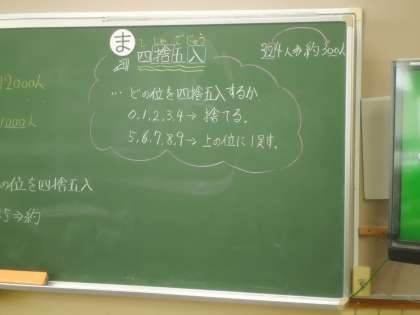 12000人
1000人
の位を四捨五入
5⇒約
ま
し しゃ ご にゅう
四捨五入
… どの位を四捨五入するか
0.1.2.3.4→捨てる.
5.6.7.8.9→上の位に1足す.
324人が約300人